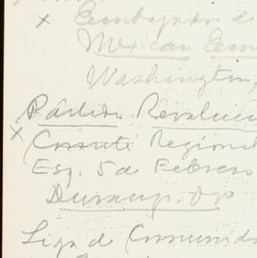 x Embajada de
Mexican Em
Washington,
Partido Revoluci
x Comité Regional
Esq. 5 de Febrero
Durango, Dgo
Liga de Comunida